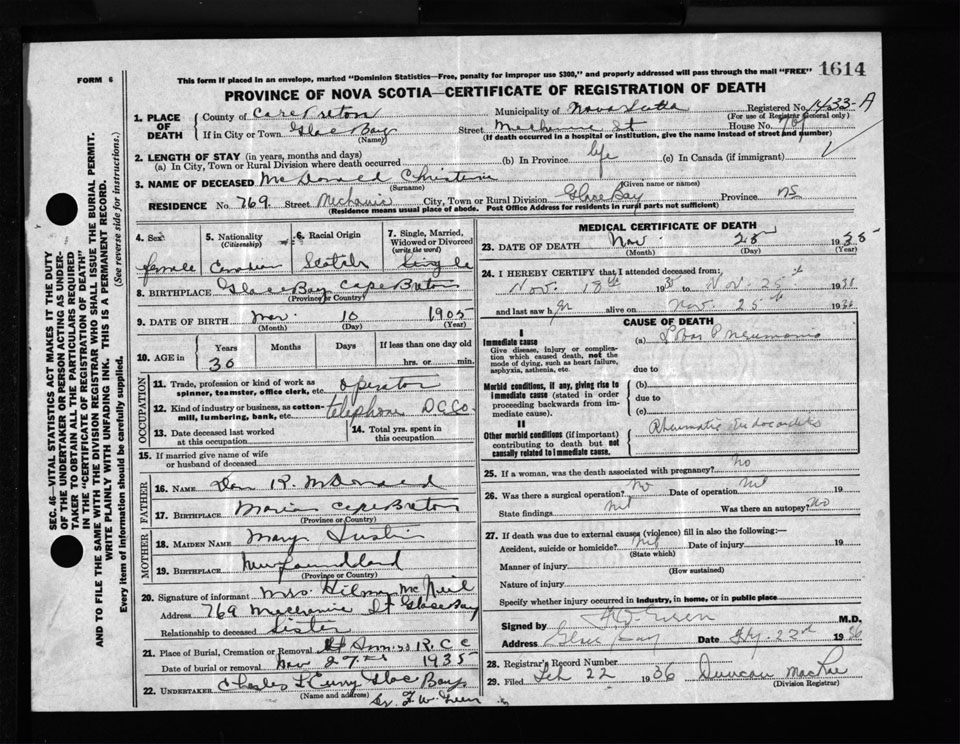 FORM 6
This form if placed in an envelope, marked "Dominion Statistics—Free, penalty for improper use $300," and properly addressed will pass through the mail "FREE" 1614
PROVINCE OF NOVA SCOTIA—CERTIFICATE OF REGISTRATION OF DEATH
SEC. 46—VITAL STATISTICS ACT MAKES IT THE DUTY
OF THE UNDERTAKER OR PERSON ACTING AS UNDER-
TAKER TO OBTAIN ALL THE PARTICULARS REQUIRED
IN THE "CERTIFICATE OF REGISTRATION OF DEATH"
AND TO FILE THE SAME WITH THE DIVISION REGISTRAR WHO SHALL ISSUE THE BURIAL PERMIT.
WRITE PLAINLY WITH UNFADING INK. THIS IS A PERMANENT RECORD.
Every item of Information should be carefully supplied. (See reverse side for instructions.)
1. PLACE OF DEATH County of Cape Breton Municipality of Nova Scotia Registered No. 1433-A
(For use of Registrar General only)
If in City or Town Glace Bay Street Mechanic St House No. 769
(Name) (If death occurred in a hospital or institution, give the name instead of street and number)
2. LENGTH OF STAY (in years, months and days)
(a) In City, Town or Rural Division where death occurred (b) In Province life (c) In Canada (if immigrant)
3. NAME OF DECEASED McDonald Christena
(Surname) (Given name or names)
RESIDENCE No. 769. Street Mechanic City, Town or Rural Division Glace Bay Province NS
(Residence means usual place of abode. Post Office Address for residents in rural parts not sufficient)
4. Sex female
5. Nationality (Citizenship) Canadian
6. Racial Origin Scotch
7. Single, Married, Widowed or Divorced (write the word) Single
8. BIRTHPLACE Glace Bay Cape Breton
(Province or Country)
9. DATE OF BIRTH Mar. 10 1905
(Month) (Day) (Year)
10. AGE in Years Months Days If less than one day old
30 hrs. or min.
OCCUPATION
11. Trade, profession or kind of work as spinner, teamster, office clerk, etc. Operator
12. Kind of industry or business, as cotton-mill, lumbering, bank, etc. telephone
13. Date deceased last worked at this occupation
14. Total yrs. spent in this occupation
15. If married give name of wife or husband of deceased
FATHER
16. NAME Dan R. McDonald
17. BIRTHPLACE Cape Breton
(Province or Country)
MOTHER
18. MAIDEN NAME Mary
19. BIRTHPLACE Newfoundland
(Province or Country)
20. Signature of informant Mrs. McNeil
Address 769 Mechanic St Glace Bay
Relationship to deceased Sister
21. Place of Burial, Cremation or Removal R.C.C
Date of burial or removal Nov 27. 1935
22. UNDERTAKER Charles Glace Bay
(Name and address)
MEDICAL CERTIFICATE OF DEATH
23. DATE OF DEATH Nov. 25 1935
(Month) (Day) (Year)
24. I HEREBY CERTIFY that I attended deceased from:
Nov. 18th 1935 to Nov. 25th 1935
and last saw her alive on Nov. 25th 193
CAUSE OF DEATH
I
Immediate cause (a) Lobar Pneumonia
Give disease, injury or complication which caused death, not the mode of dying, such as heart failure, asphyxia, asthenia, etc.
due to
Morbid conditions, if any, giving rise to immediate cause (stated in order proceeding backwards from immediate cause). (b)
due to
(c)
II
Other morbid conditions (if important) contributing to death but not causally related to immediate cause. Rheumatic Endocarditis
25. If a woman, was the death associated with pregnancy? No
26. Was there a surgical operation? No Date of operation Nil 19
State findings Nil Was there an autopsy? No
27. If death was due to external causes (violence) fill in also the following:—
Accident, suicide or homicide? Nil Date of injury 19
(State which)
Manner of injury
(How sustained)
Nature of injury
Specify whether injury occurred in industry, in home, or in public place
Signed by M.D.
Address Glace Bay Date 22nd 1936
28. Registrar's Record Number
29. Filed Feb 22 1936 Duncan MacRae
(Division Registrar)